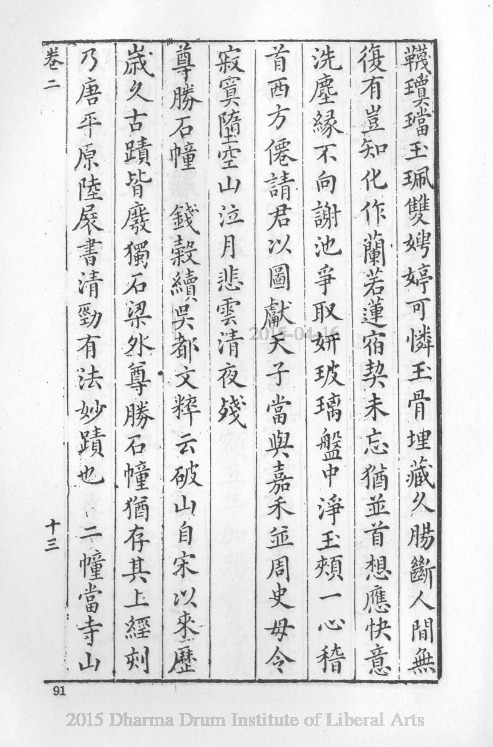 韈璳璫玉珮雙娉婷可憐玉骨埋藏久腸斷人間無
復有豈知化作蘭若蓮宿契未忘猶並首想應快意
洗塵緣不向謝池爭取妍玻璃盤中淨玉頰一心稽
首西方僊請君以圖獻天子當與嘉禾並周史毋令
寂寞墮空山泣月悲雲清夜殘
尊勝石幢 錢穀續吳都文粹云破山自宋以來歷
歲久古蹟皆廢獨石梁外尊勝石幢猶存其上經刻
乃唐平原陸展書清勁有法妙蹟也 二幢當寺山
卷二 十三
2015-04-16
91
2015 Dharma Drum Institute of Liberal Arts